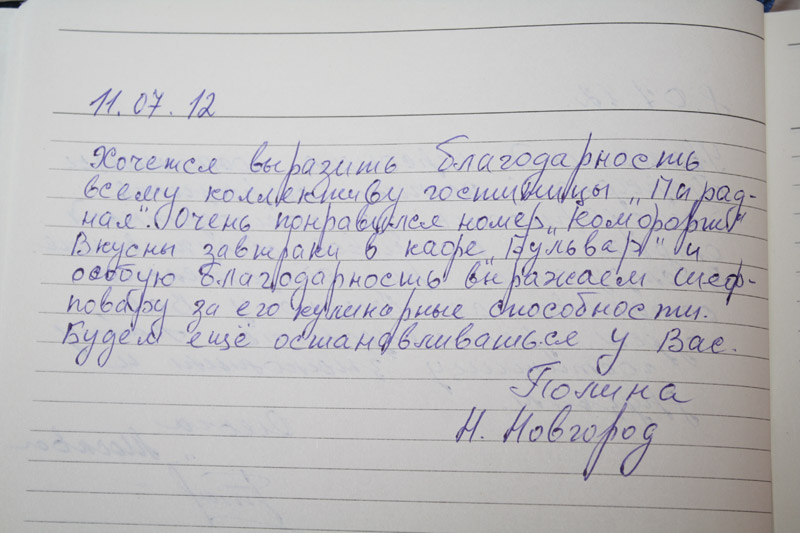 11.07.12
Хочется выразить благодарность
всему коллективу гостиницы „Парад-
ная“. Очень понравился номер „Комфорт“
Вкусны завтраки в кафе „Бульвар“ и
особую благодарность выражаем шеф-
повару за его кулинарные способности.
Будем ещё останавливаться у Вас.
Полина
Н. Новгород